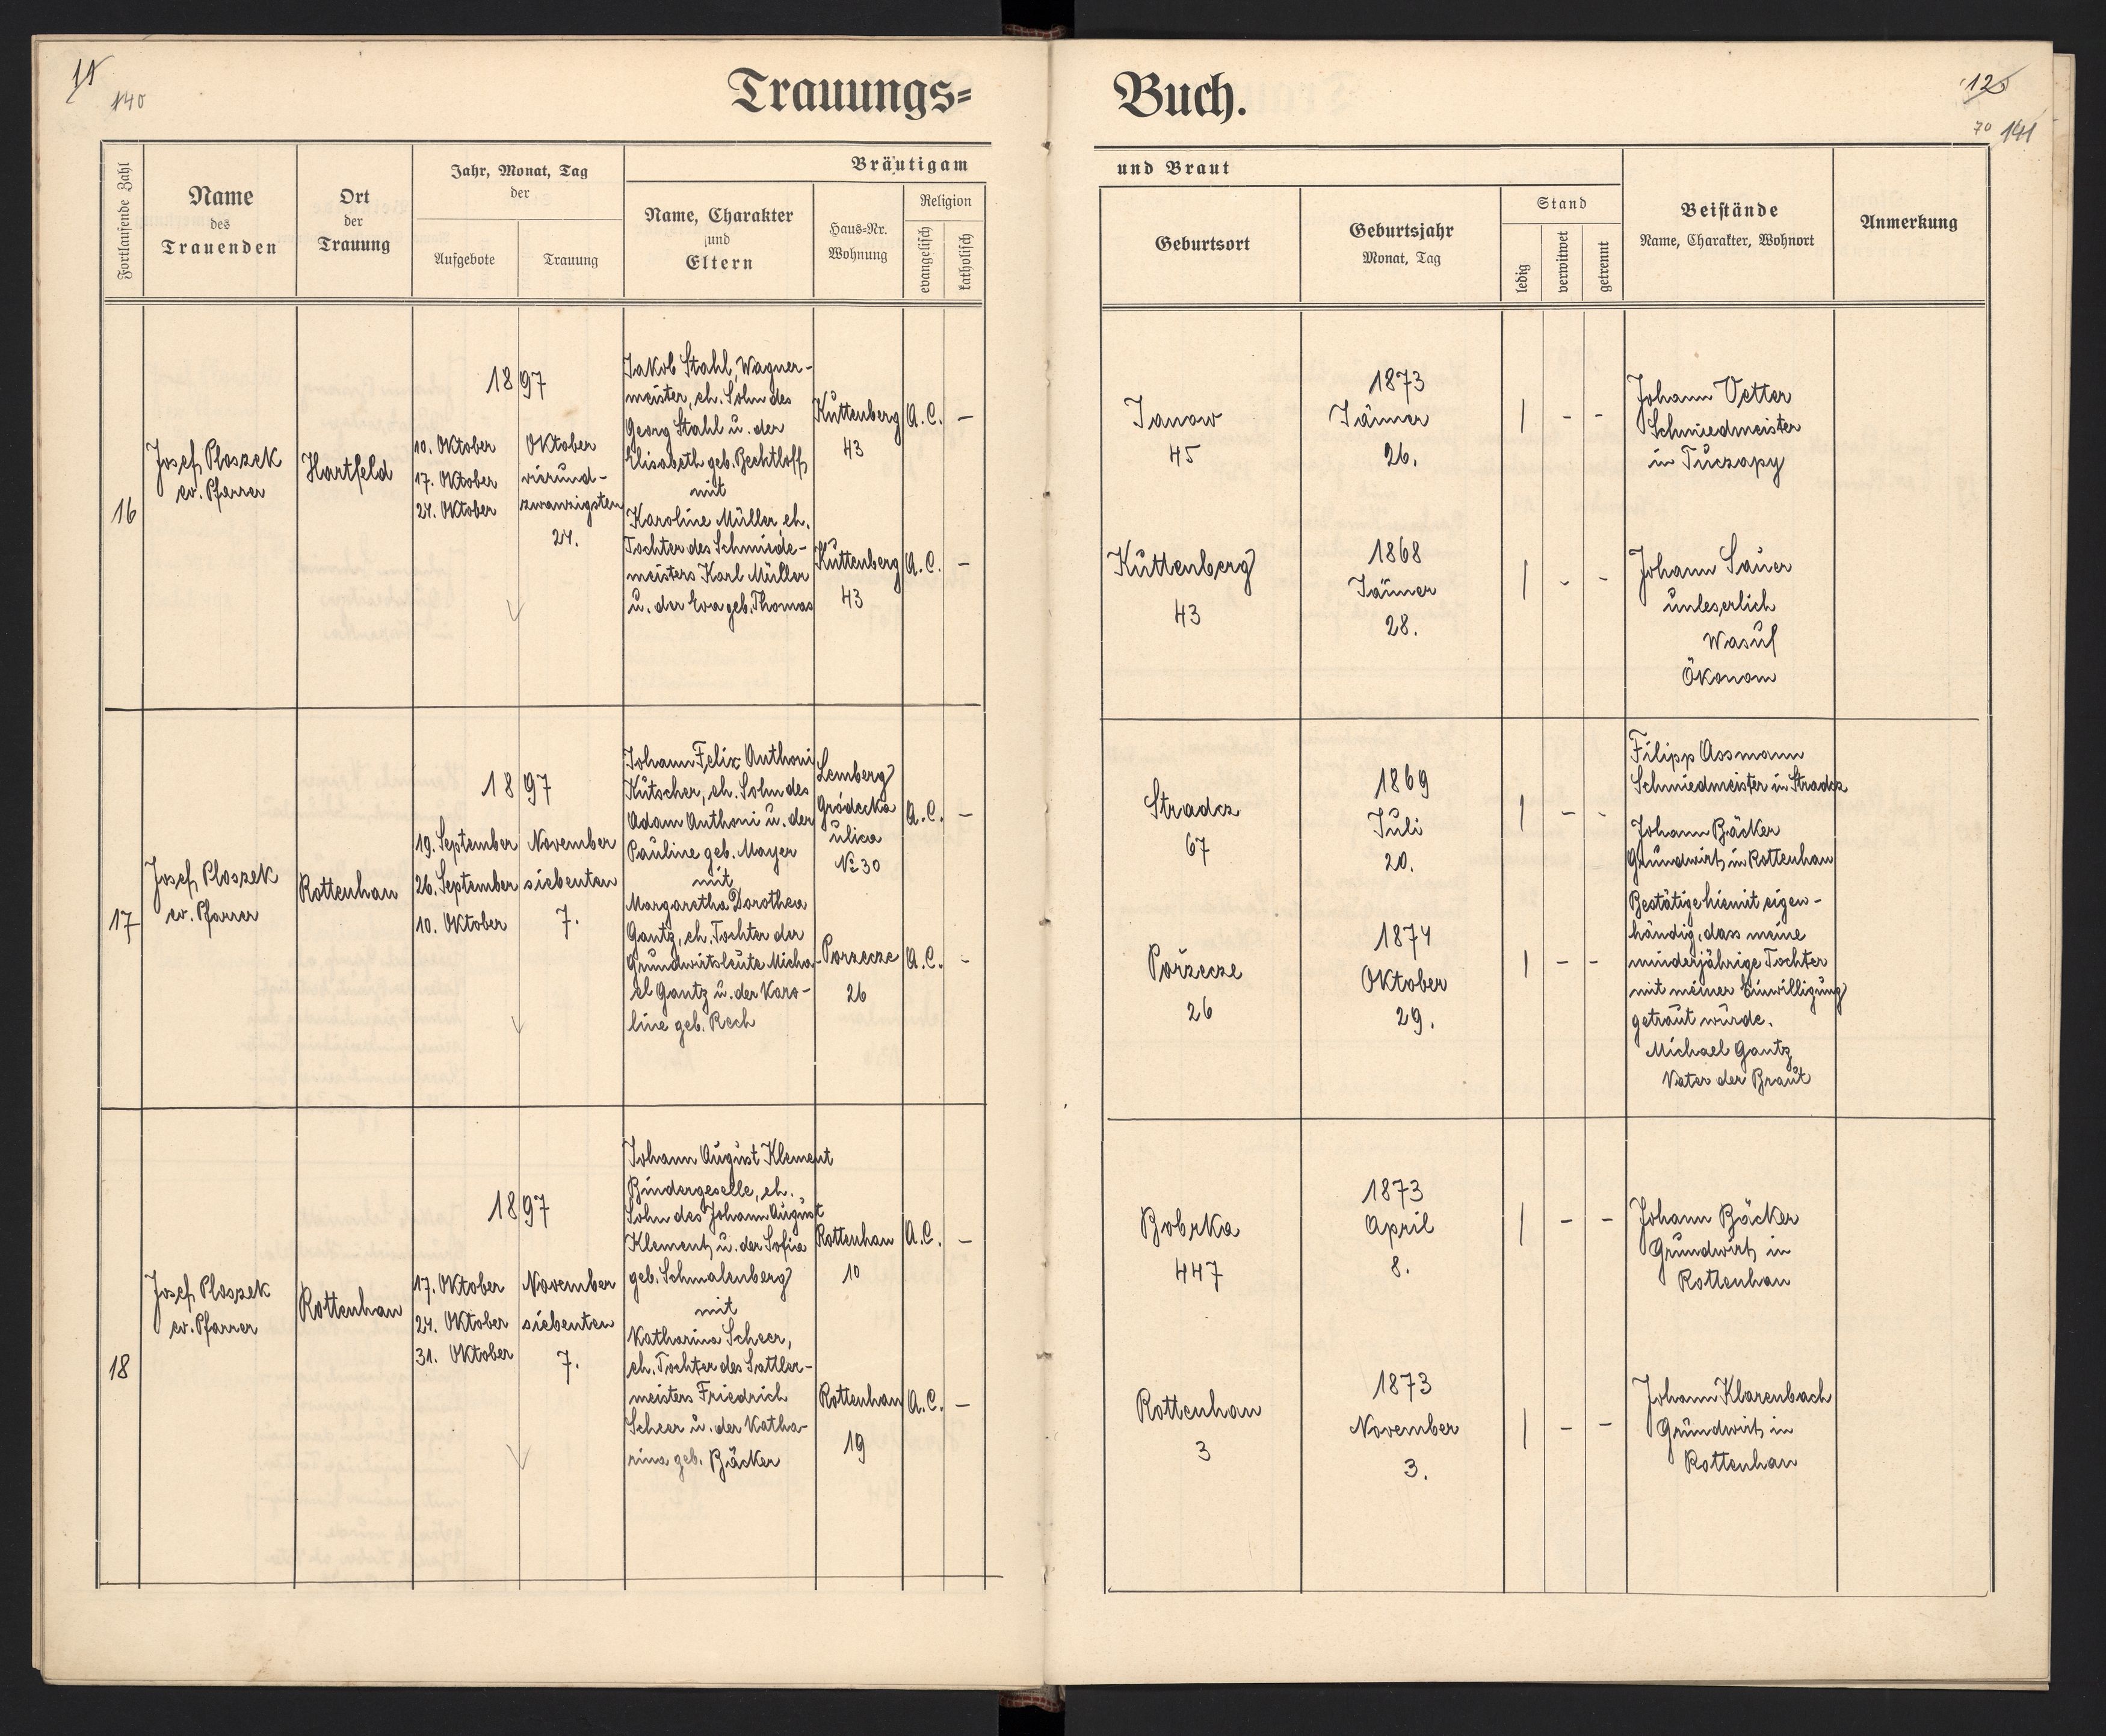 11
140
Trauungs=
Fortlaufende Zahl
Name
des
Trauenden
Ort
der
Trauung
Jahr, Monat, Tag
der
Aufgebote
Trauung
Bräutigam
Name, Charakter
und
Eltern
Haus=Nr.
Wohnung
Religion
evangelisch
katholisch
16
Josef Ploszek
ev. Pfarrer
Hartfeld
1897
10. Oktober
17. Oktober
24. Oktober
Oktober
vierund-
zwanzigsten
24.
Jakob Stahl, Wagner-
meister, eh. Sohn des
Georg Stahl u. der
Elisabeth geb. Bechtloff
mit
Karoline Müller, eh.
Tochter des Schmiede-
meisters Karl Müller
u. der Eva geb. Thomas
Kuttenberg
43
A.C.
–
Kuttenberg
43
A.C.
–
17
Josef Ploszek
ev. Pfarrer
Rottenhan
1897
19. September
26. September
10. Oktober
November
siebenten
7.
Johann Felix Anthoni
Kutscher, eh. Sohn des
Adam Anthoni u. der
Pauline geb. Mayer
mit
Margaretha Dorothea
Gantz, eh. Tochter der
Grundwirtsleute Micha-
el Gantz u. der Karo-
line geb. Rech
Lemberg
Gródecka
ulica
№ 30
A.C.
–
Porzecze
26
A.C.
-
18
Josef Ploszek
ev. Pfarrer
Rottenhan
1897
17. Oktober
24. Oktober
31. Oktober
November
siebenten
7.
Johann August Klement
Bindergeselle, eh.
Sohn des Johann August
Klement u. der Sofia
geb. Schmalenberg
mit
Katharina Scheer,
eh. Tochter des Sattler-
meisters Friedrich
Scheer u. der Katha-
rina geb. Bäcker
Rottenhan
10
A.C.
–
Rottenhan
19
A.C.
–
Buch.
12
70 141
und Braut
Geburtsort
Geburtsjahr
Monat, Tag
Stand
ledig
verwitwet
getrennt
Beistände
Name, Charakter, Wohnort
Anmerkung
Janow
45
1873
Jänner
26.
| - -
Johann Vetter
Schmiedmeister
in Tuczapy
Kuttenberg
43
1868
Jänner
28.
| - -
Johann Sauer
unleserlich
Wasul
Ökonom
Stradcz
67
1869
Juli
20.
| - -
Filipp Assmann
Schmiedmeister in Stradcz
Johann Bäcker
Grundwirt in Rottenhan
Porzecze
26
1874
Oktober
29.
| - -
Bestätige hiemit eigen-
händig, dass meine
minderjährige Tochter
mit meiner Einwilligung
getraut wurde.
Michael Gantz
Vater der Braut
Bobrka
447
1873
April
8.
| - -
Johann Bäcker
Grundwirt in
Rottenhan
Rottenhan
3
1873
November
3.
| - -
Johann Klarenbach
Grundwirt in
Rottenhan